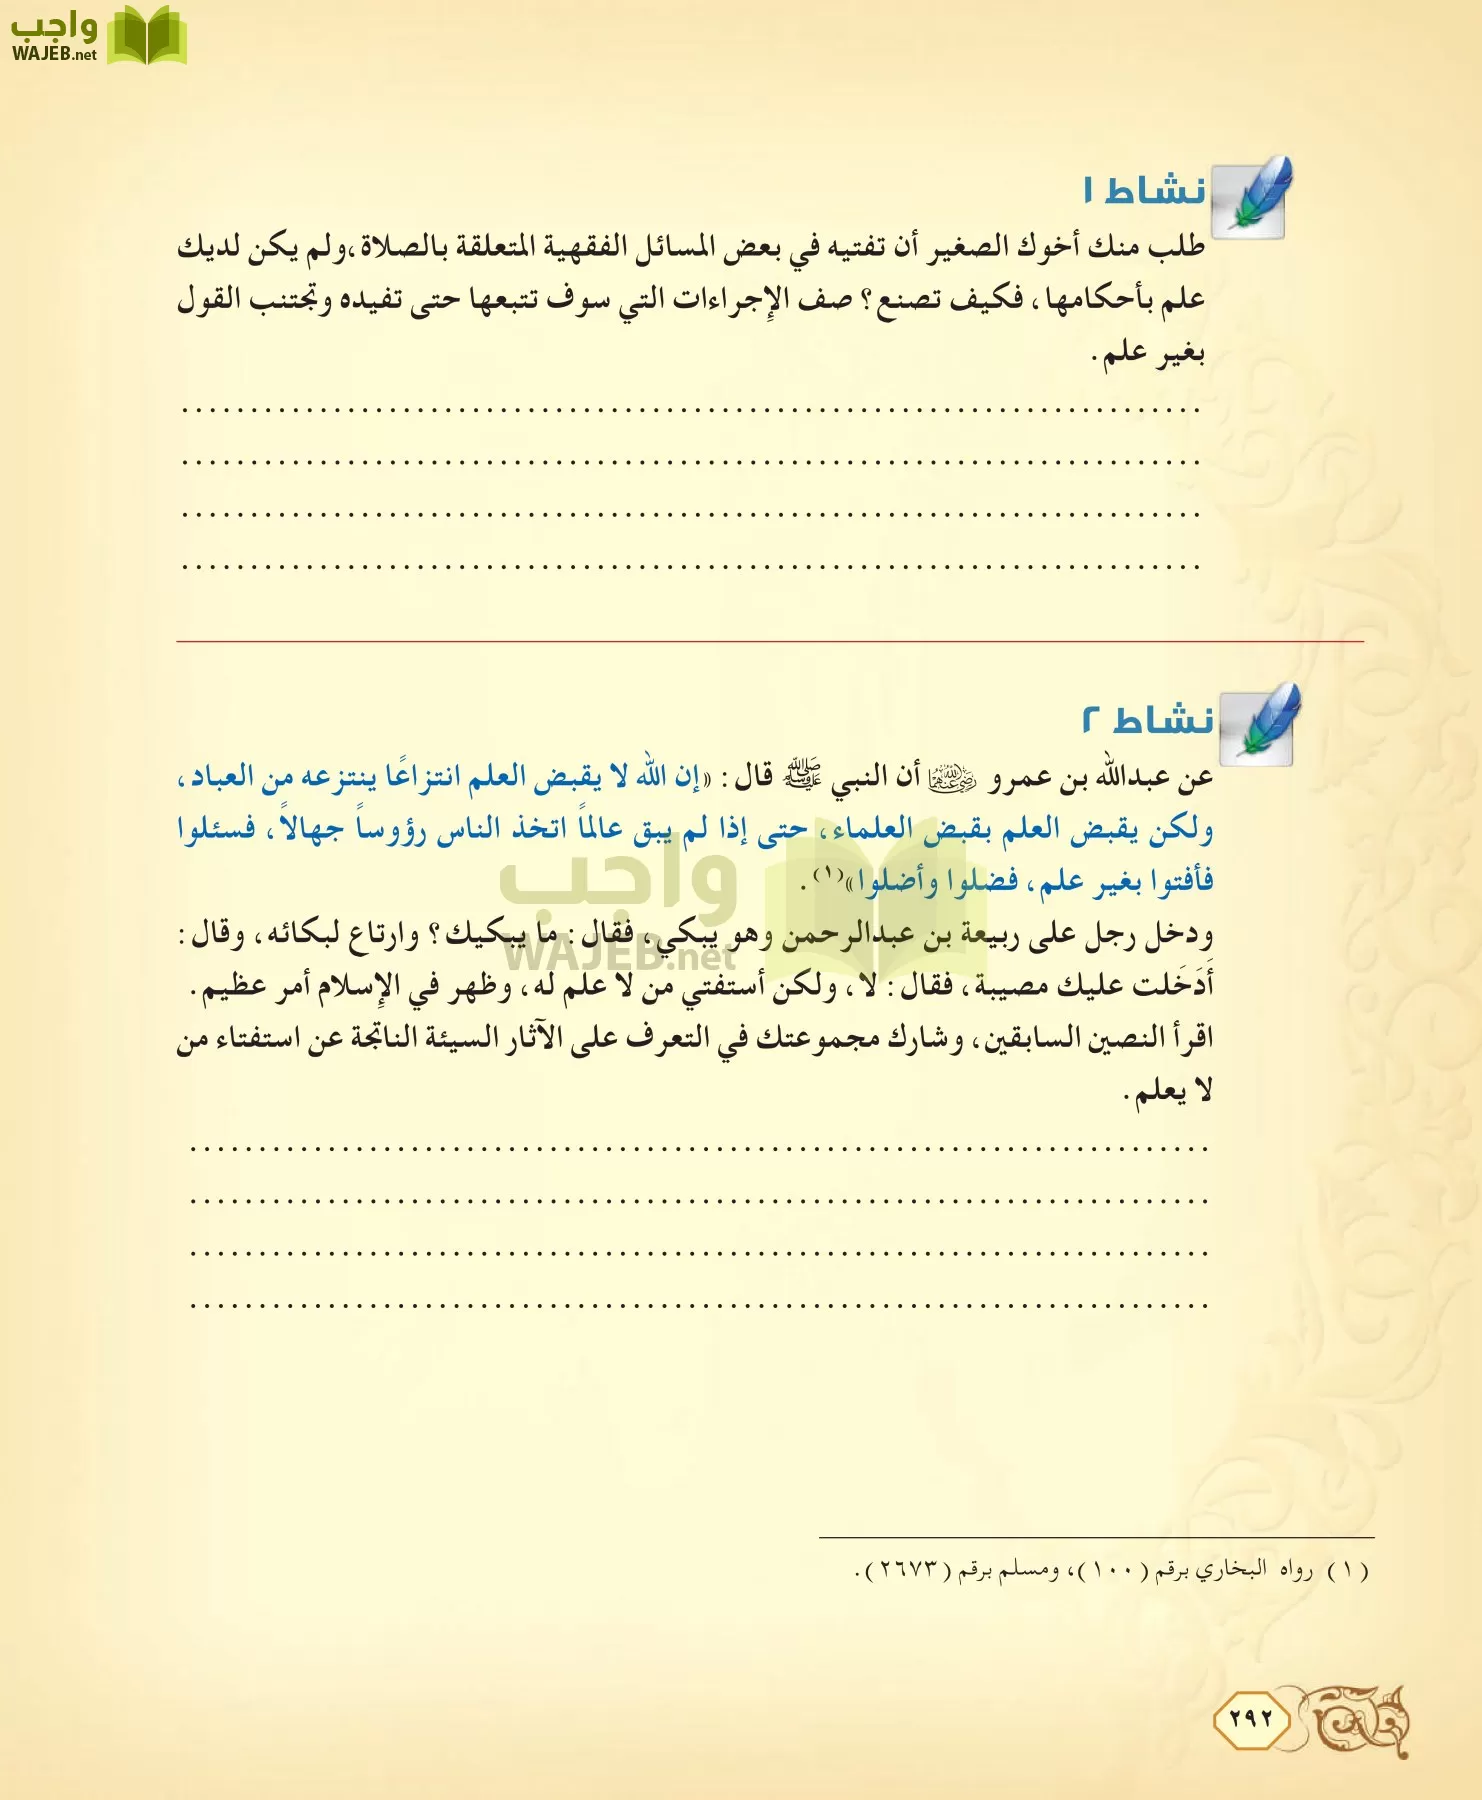 واجب
WAJEB.net
نشاط ١
طلب منك أخوك الصغير أن تفتيه في بعض المسائل الفقهية المتعلقة بالصلاة،ولم يكن لديك
علم بأحكامها، فكيف تصنع؟ صف الإجراءات التي سوف تتبعها حتى تفيده وتجتنب القول
بغير علم.
نشاط ٢
عن عبدالله بن عمرو رضي الله عنهما أن النبي ﷺ قال: «إن الله لا يقبض العلم انتزاعًا ينتزعه من العباد،
ولكن يقبض العلم بقبض العلماء، حتى إذا لم يبق عالماً اتخذ الناس رؤوساً جهالاً، فسئلوا
فأفتوا بغير علم، فضلوا وأضلوا»(١).
واجب
ودخل رجل على ربيعة بن عبدالرحمن وهو يبكي، فقال: ما يبكيك؟ وارتاع لبكائه، وقال:
WAJEB.net
أَدَخَلت عليك مصيبة، فقال: لا، ولكن أستفتي من لا علم له، وظهر في الإسلام أمر عظيم.
اقرأ النصين السابقين، وشارك مجموعتك في التعرف على الآثار السيئة الناتجة عن استفتاء من
لا يعلم.
(١) رواه البخاري برقم (١٠٠)، ومسلم برقم (٢٦٧٣).
٢٩٢